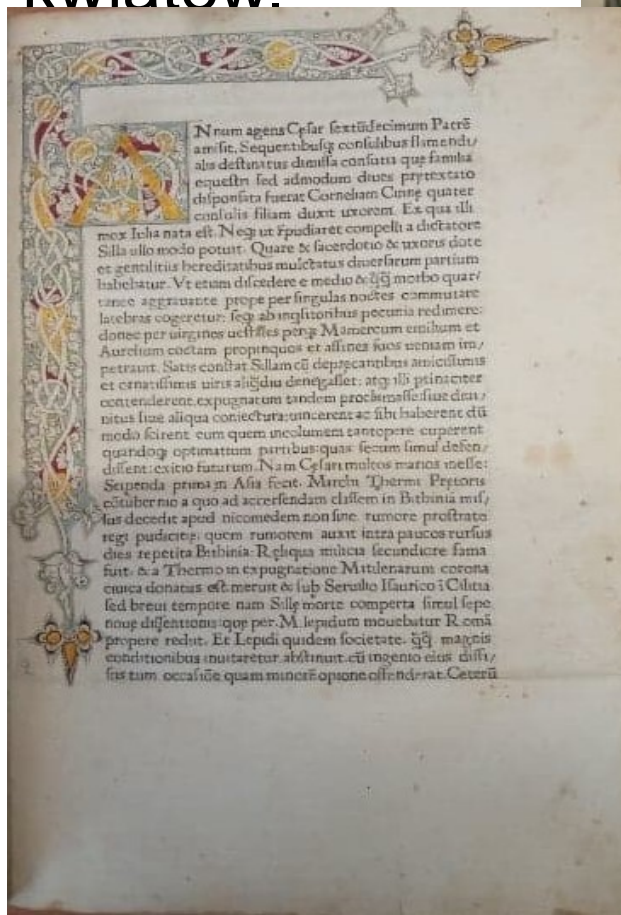 kwiatów.
ANnum agens Cęsar sextūdecimum Patrē
amisit. Sequentibusq; consulibus flamendi/
alis destinatus dimissa consutia quę familia
equestri sed admodum diues prętextato
disponsata fuerat Corneliam Cinnę quater
consulis filiam duxit uxorem. Ex qua illi
mox Iulia nata est. Neq; ut repudiaret compelli a dictatore
Silla ullo modo potuit. Quare & sacerdotio & uxoris dote
et gentilitiis hereditatibus mulctatus diuersarum partium
habebatur. Vt etiam discedere e medio & q̄q̄ morbo quar/
tanę aggrauante prope per singulas noctes commutare
latebras cogeretur: seq; ab inqsitoribus pecunia redimere:
donec per uirgines uestales perq; Mamercum emilium et
Aurelium cottam propinquos et affines suos ueniam im/
petrauit. Satis constat Sillam cū deprecantibus amicissimis
et ornatissimis uiris denegasset: atq; illi ptinaciter
contenderent, expugnatum tandem proclamasse: siue diui/
nitus siue aliqua coniectura: uincerent ac sibi haberent dū
modo scirent eum quem incolumem tantopere cuperent
quandoq; optimatium partibus: quas secum simul defen/
dissent: exitio futurum. Nam Cęsari multos marios inesse:
Stipendia prima in Asia fecit. Marchi Thermi Pretoris
cōtubernio a quo ad accersendam classem in Bithinia mis/
sus decedit apud nicomedem non sine rumore prostratę
regi pudicitię. quem rumorem auxit intra paucos rursus
dies repetita Bithinia: Reliqua militia secundiore fama
fuit. & a Thermo in expugnatione Mitilenarum corona
ciuica donatus est. meruit & sub Seruilio Isaurico ī Cilitia
sed breui tempore nam Sillę morte comperta simul sepe
nouę dissentionis: quę per. M. lepidum mouebatur Romā
propere rediit. Et Lepidi quidem societate. q̄q̄ magnis
conditionibus inuitaretur abstinuit. cū ingenio eius diffi/
sus tum occasiōe quam minorē opione offenderat. Ceterū